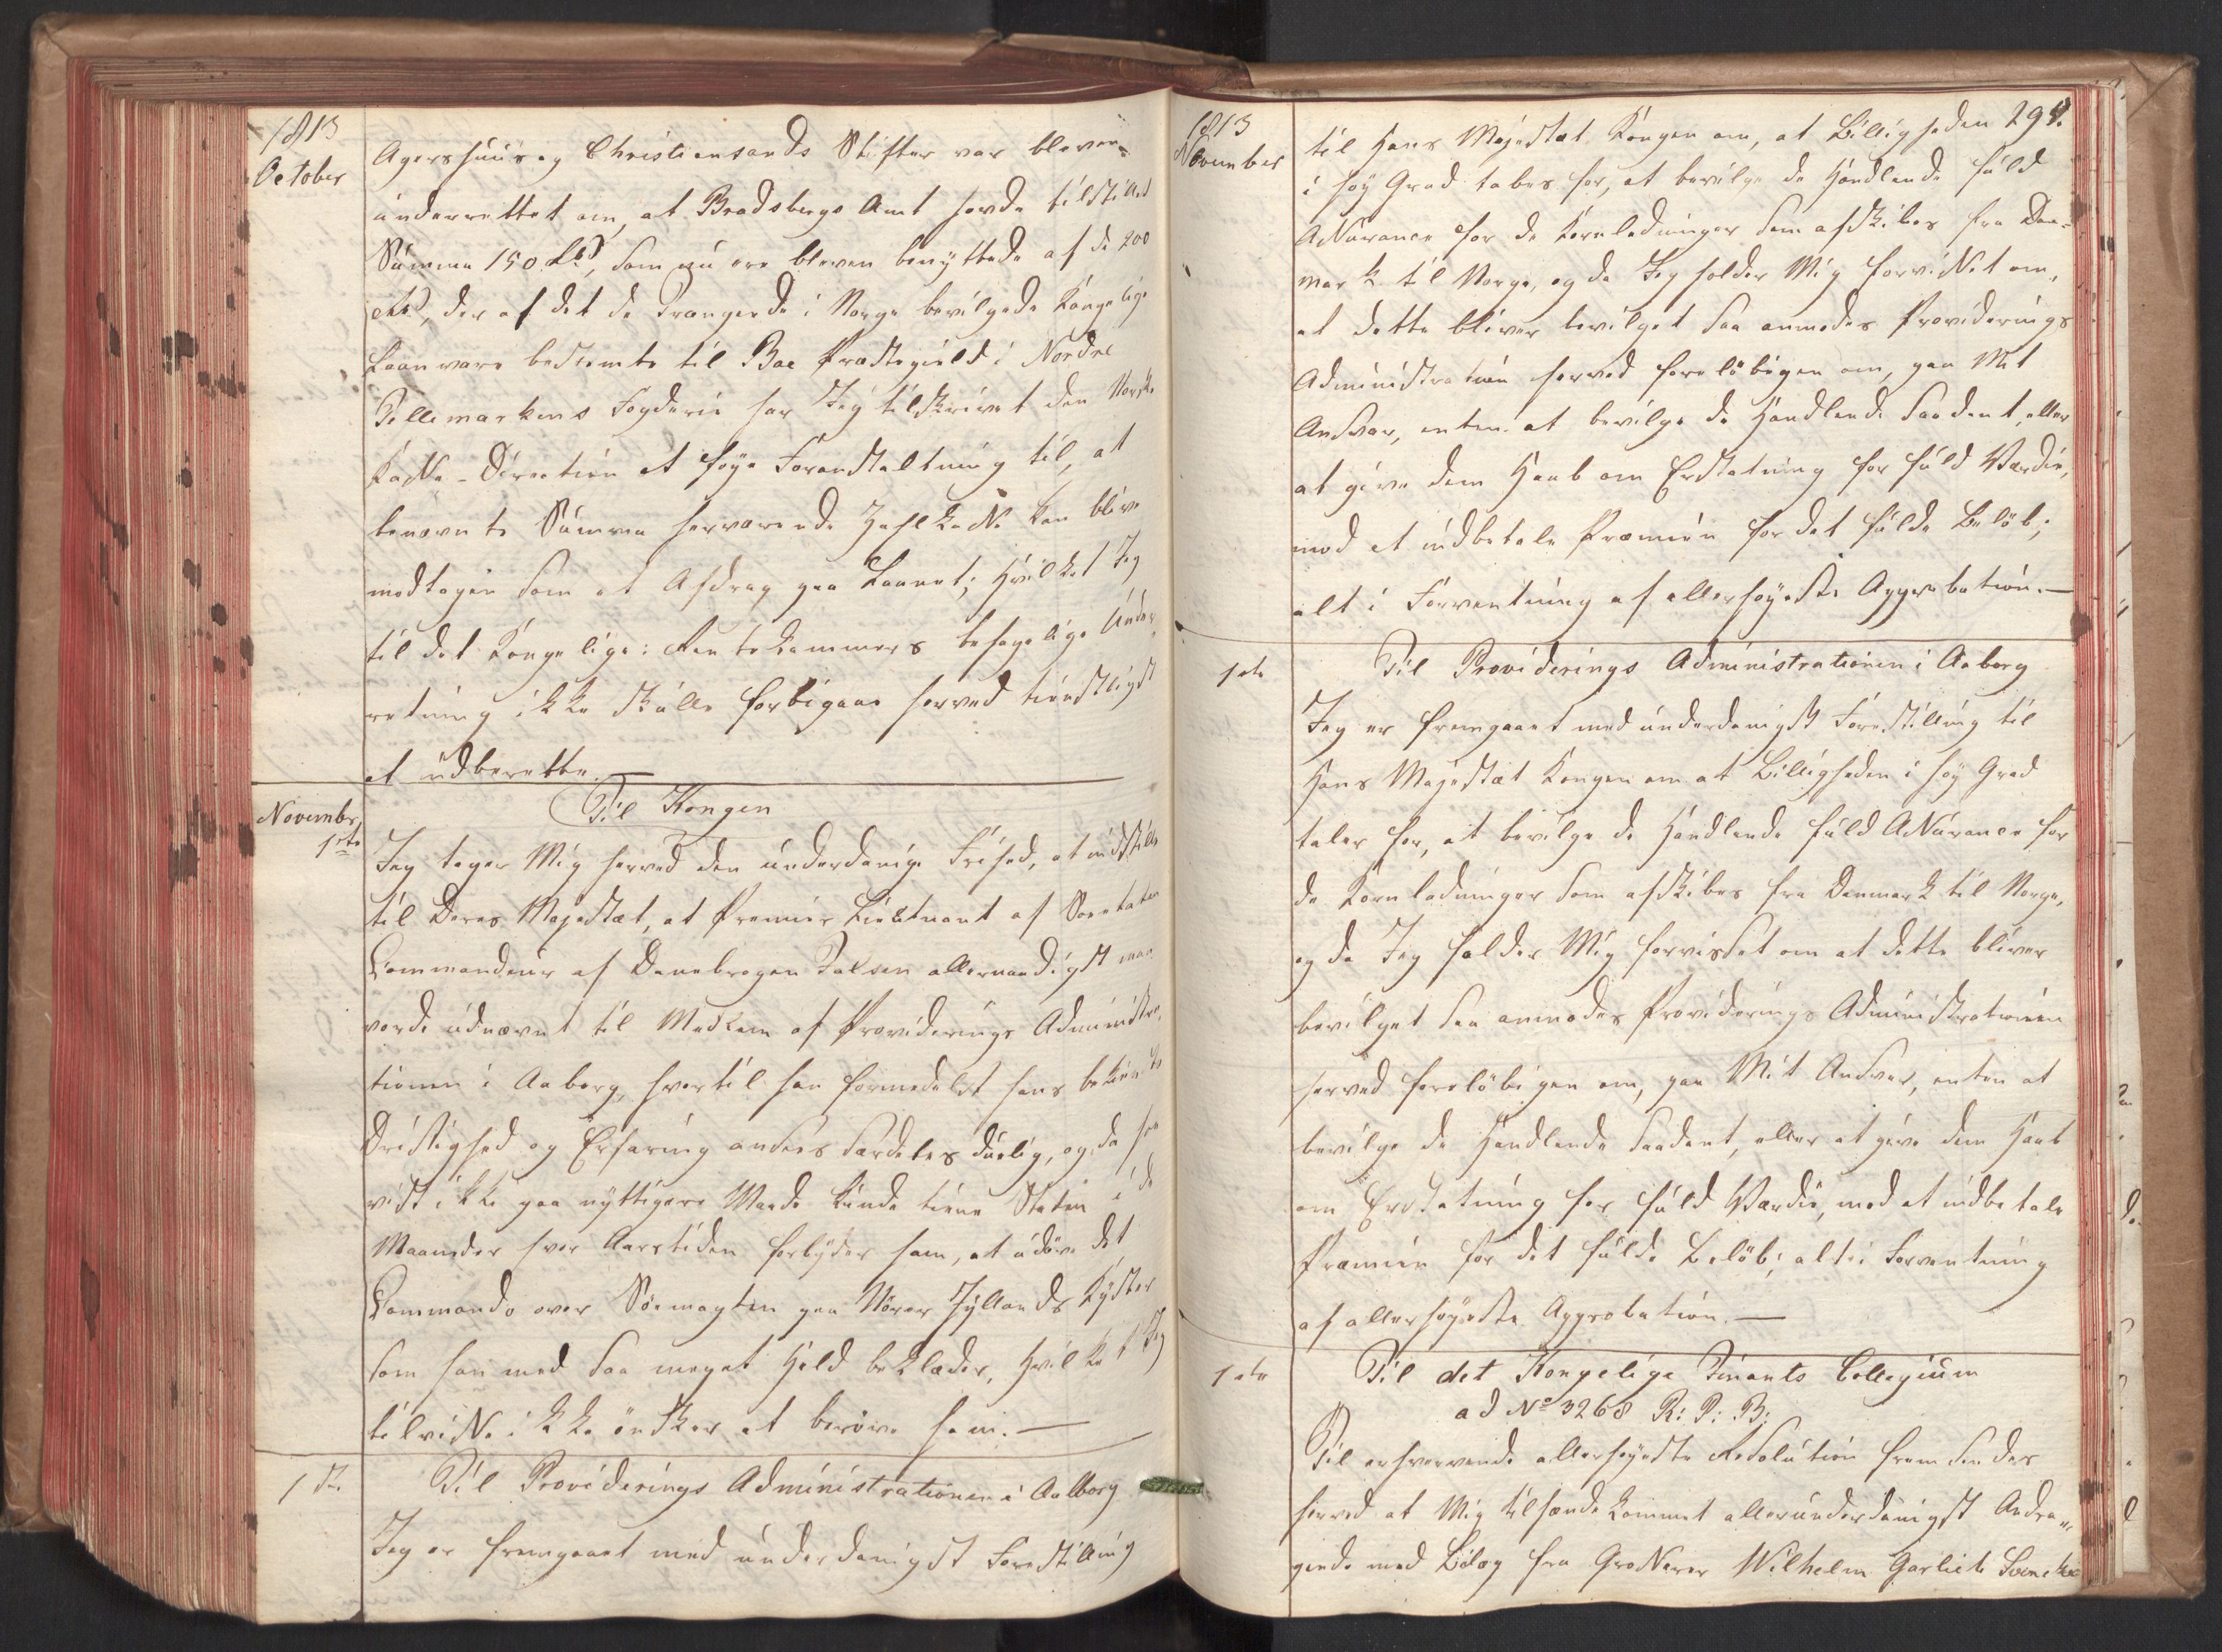 1813
October
Agershuus og Christiansands Stifter var bleven
underrettet om, at Bradsbergs Amt havde tilstillet
Summa 150 , som nu ere bleven benyttede af de 200
, der af det de Trængende i Norge bevilgede Kongelige
Laan vare bestemte til Boe Præstegield i Nordre
Tellemarkens Fogderie har Jeg tilskrivet den Norske
Kasse-Direction at føye Foranstaltning til, at
benævnte Summa herværende Zahlkasse kan blive
modtagen som et Afdrag paa Laanet; Hvilket Jeg
til det Kongelige: Rentekammers behagelige Under-
retning ikke skulle forbigaae herved tienstligst
at udberette.—
November
1ste
Til Kongen
Jeg tager Mig herved den underdanige Frihed, at indstille
til Deres Majestæt, at Premier Lieutnant af Søeetaten
Commandeur af Danebrogen Falsen allernaadigst maae
vorde udnævnt til Medlem af Providerings Administra-
tionen i Aaborg, hvortil han formedelst hans bekiendte
Dristighed og Erfaring ansees særdeles duelig, og da han
vist ikke paa nyttigere Maade kunde tiene Staten i de
Maaneder hvor Aarstiden forbyder ham, at udøve det
Commando over Søemagten paa Nørre Jyllands Kyster
som han med saa meget Held beklæder, Hvilket Jeg
tilvisse ikke ønsker at berøve ham.—
1ste
Til Providerings Administrationen i Aalborg
Jeg er fremgaaet med underdanigst Forestilling
1813
November
294.
til Hans Majestæt Kongen om, at Billigheden
i høy Grad taler for, at bevilge de Handlende fuld
Assurance for de Kornladninger som afskibes fra Dan-
mark til Norge, og da Jeg holder Mig forvisset om,
at dette bliver bevilget saa anmodes Providerings
Administrationen herved foreløbigen om, paa Mit
Ansvar, enten at bevilge de Handlende saadant, eller
at give dem Haab om Erstatning for fuld Værdie,
mod at indbetale Præmien for det fulde Beløb;
alt i Forventning af allerhøyeste Approbation.—
1ste
Til Providerings Administrationen i Aaborg
Jeg er fremgaaet med underdanigst Forestilling til
Hans Majestæt Kongen om at Billigheden i høy Grad
taler for, at bevilge de Handlende fuld Assurance for
de Kornladninger som afskibes fra Danmark til Norge,
og da Jeg holder Mig forvisset om at dette bliver
bevilget saa anmodes Providerings Administrationen
herved foreløbigen om, paa Mit Ansvar, enten at
bevilge de Handlende saadant, eller at give dem Haab
om Erstatning for fuld Værdie, mod at indbetale
Præmien for det fulde Beløb; alt i Forventning
af allerhøyeste Approbation.—
1ste
Til det Kongelige Finants Collegium
ad No 3268 R: P: B:
Til erhvervende allerhøyeste Resolution fremsendes
herved et Mig tilhændekommet allerunderdanigst Andra-
gende med Bilag fra Grosserer Wilhelm Garlieb